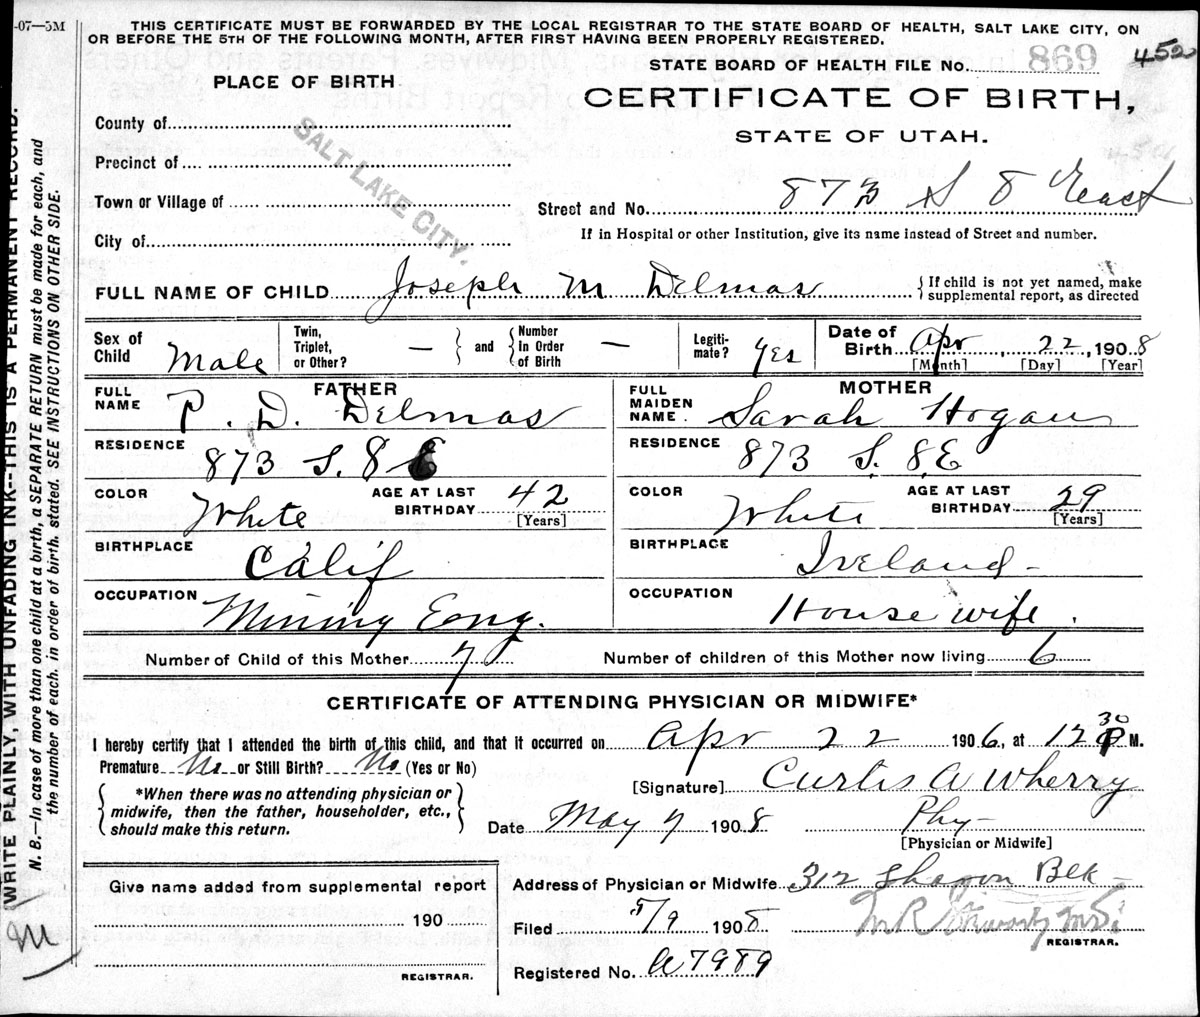 -07—5M
THIS CERTIFICATE MUST BE FORWARDED BY THE LOCAL REGISTRAR TO THE STATE BOARD OF HEALTH, SALT LAKE CITY, ON
OR BEFORE THE 5TH OF THE FOLLOWING MONTH, AFTER FIRST HAVING BEEN PROPERLY REGISTERED.
PLACE OF BIRTH
STATE BOARD OF HEALTH FILE No. 869 452
CERTIFICATE OF BIRTH,
STATE OF UTAH.
County of
Precinct of
Town or Village of
City of
SALT LAKE CITY.
Street and No. 873 S 8 East
If in Hospital or other Institution, give its name instead of Street and number.
FULL NAME OF CHILD Joseph M Delmas
{ If child is not yet named, make
supplemental report, as directed
Sex of Child Male
Twin, Triplet, or Other? — } and { Number In Order of Birth —
Legiti-mate? Yes
Date of Birth Apr, 22, 1908
[Month] [Day] [Year]
FATHER
FULL NAME P. D. Delmas
RESIDENCE 873 S. 8 E
COLOR White
AGE AT LAST BIRTHDAY 42 [Years]
BIRTHPLACE Calif
OCCUPATION Mining Eong.
MOTHER
FULL MAIDEN NAME. Sarah Hogan
RESIDENCE 873 S. 8. E
COLOR White
AGE AT LAST BIRTHDAY 29 [Years]
BIRTHPLACE Ireland -
OCCUPATION House wife.
Number of Child of this Mother 7
Number of children of this Mother now living 6
CERTIFICATE OF ATTENDING PHYSICIAN OR MIDWIFE*
I hereby certify that I attended the birth of this child, and that it occurred on Apr 22 1906, at 12 30 P M.
Premature No or Still Birth? No (Yes or No)
{ *When there was no attending physician or
midwife, then the father, householder, etc.,
should make this return. }
[Signature] Curtis A Wherry
Date May 7 1908
Phy-
[Physician or Midwife]
Give name added from supplemental report
190
REGISTRAR.
Address of Physician or Midwife 312 Blk -
Filed 5/9 1908
M R
REGISTRAR.
Registered No. a7989
WRITE PLAINLY, WITH UNFADING INK--THIS IS A PERMANENT RECORD.
N. B.—In case of more than one child at a birth, a SEPARATE RETURN must be made for each, and
the number of each, in order of birth, stated. SEE INSTRUCTIONS ON OTHER SIDE.